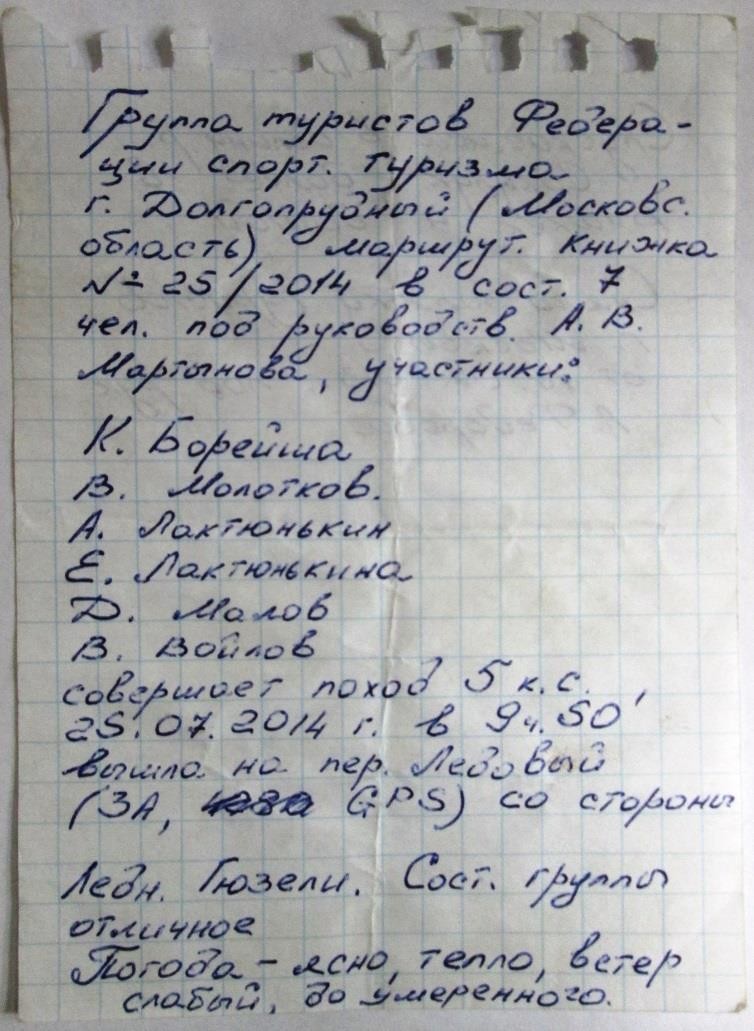 Группа туристов Федера-
ции спорт. туризма
г. Долгопрудный (Московс.
область) маршрут. книжка
№ 25/2014 в сост. 7
чел. под руководств. А. В.
Мартынова, участники:
К. Борейша
В. Молотков.
А. Лактюнькин
Е. Лактюнькина
Д. Малов
В. Войлов
совершает поход 5 к.с.,
25.07.2014 г. в 9ч. 50'
вышла на пер. Ледовый
(3А, GPS) со стороны
Ледн. Гюзели. Сост. группы
отличное
Погода - ясно, тепло, ветер
слабый, до умеренного.